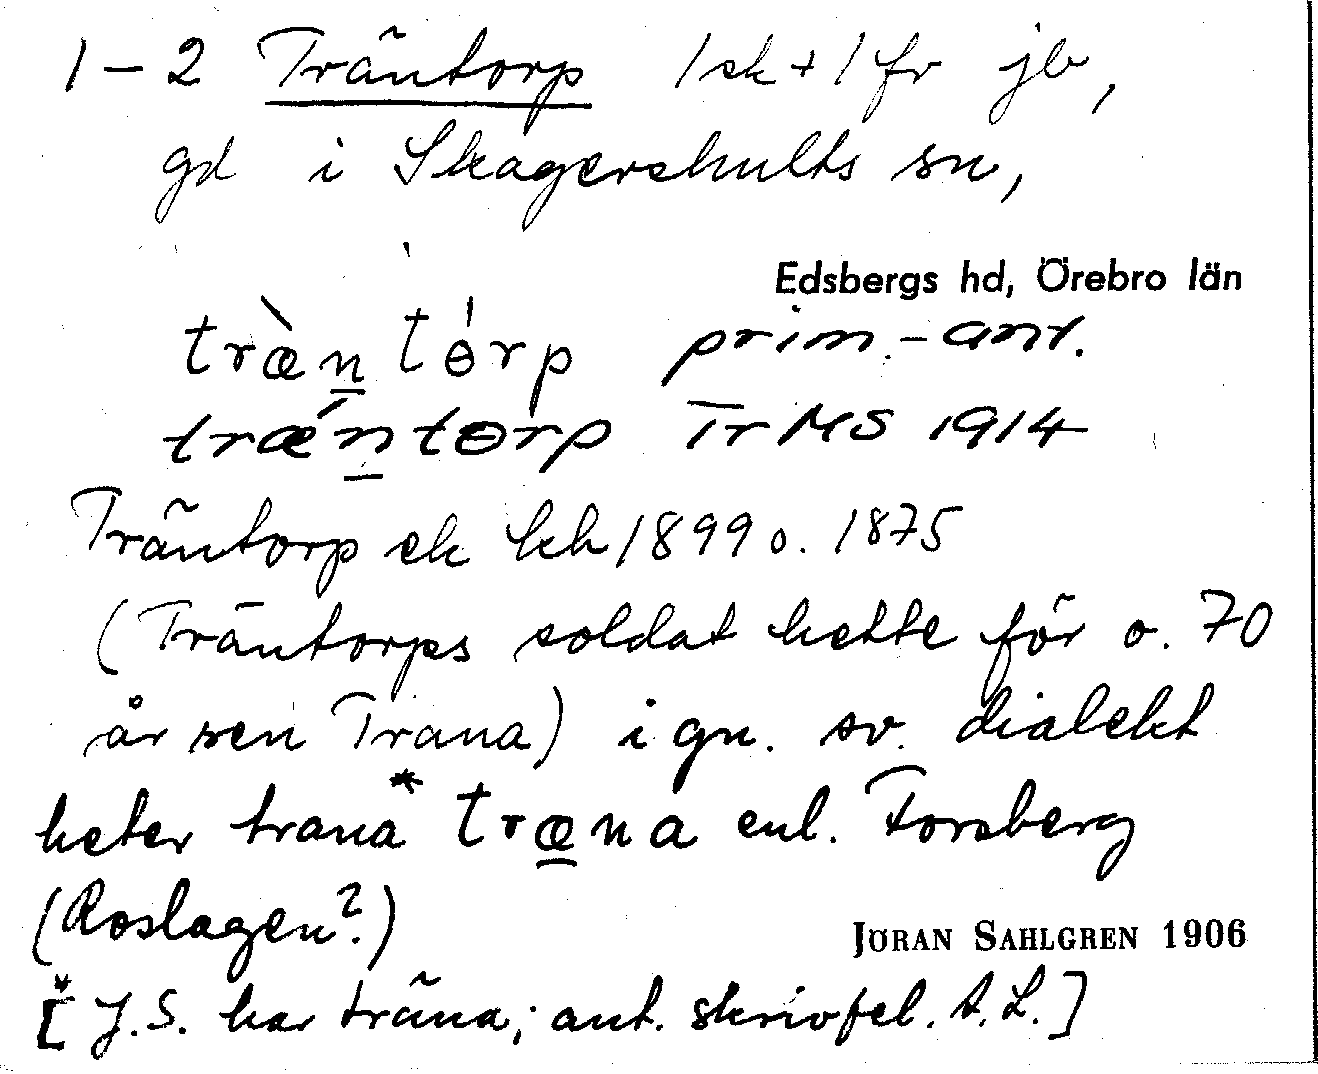 1-2 Träntorp 1 sk + 1 fr jb,
gd i Skagershults sn,
Edsbergs hd, Örebro län
træ̀n tɵ́rp prim.-ant.
trǽntɵrp Tr MS 1914
Träntorp ek kh 1899 o. 1875
(Träntorps soldat hette för o. 70
år sen Trana) i gn. sv. dialekt
heter trana* træna enl. Forsberg
(Roslagen?)
JÖRAN SAHLGREN 1906
[* J.S. har träna; ant. skrivfel. A.L.]